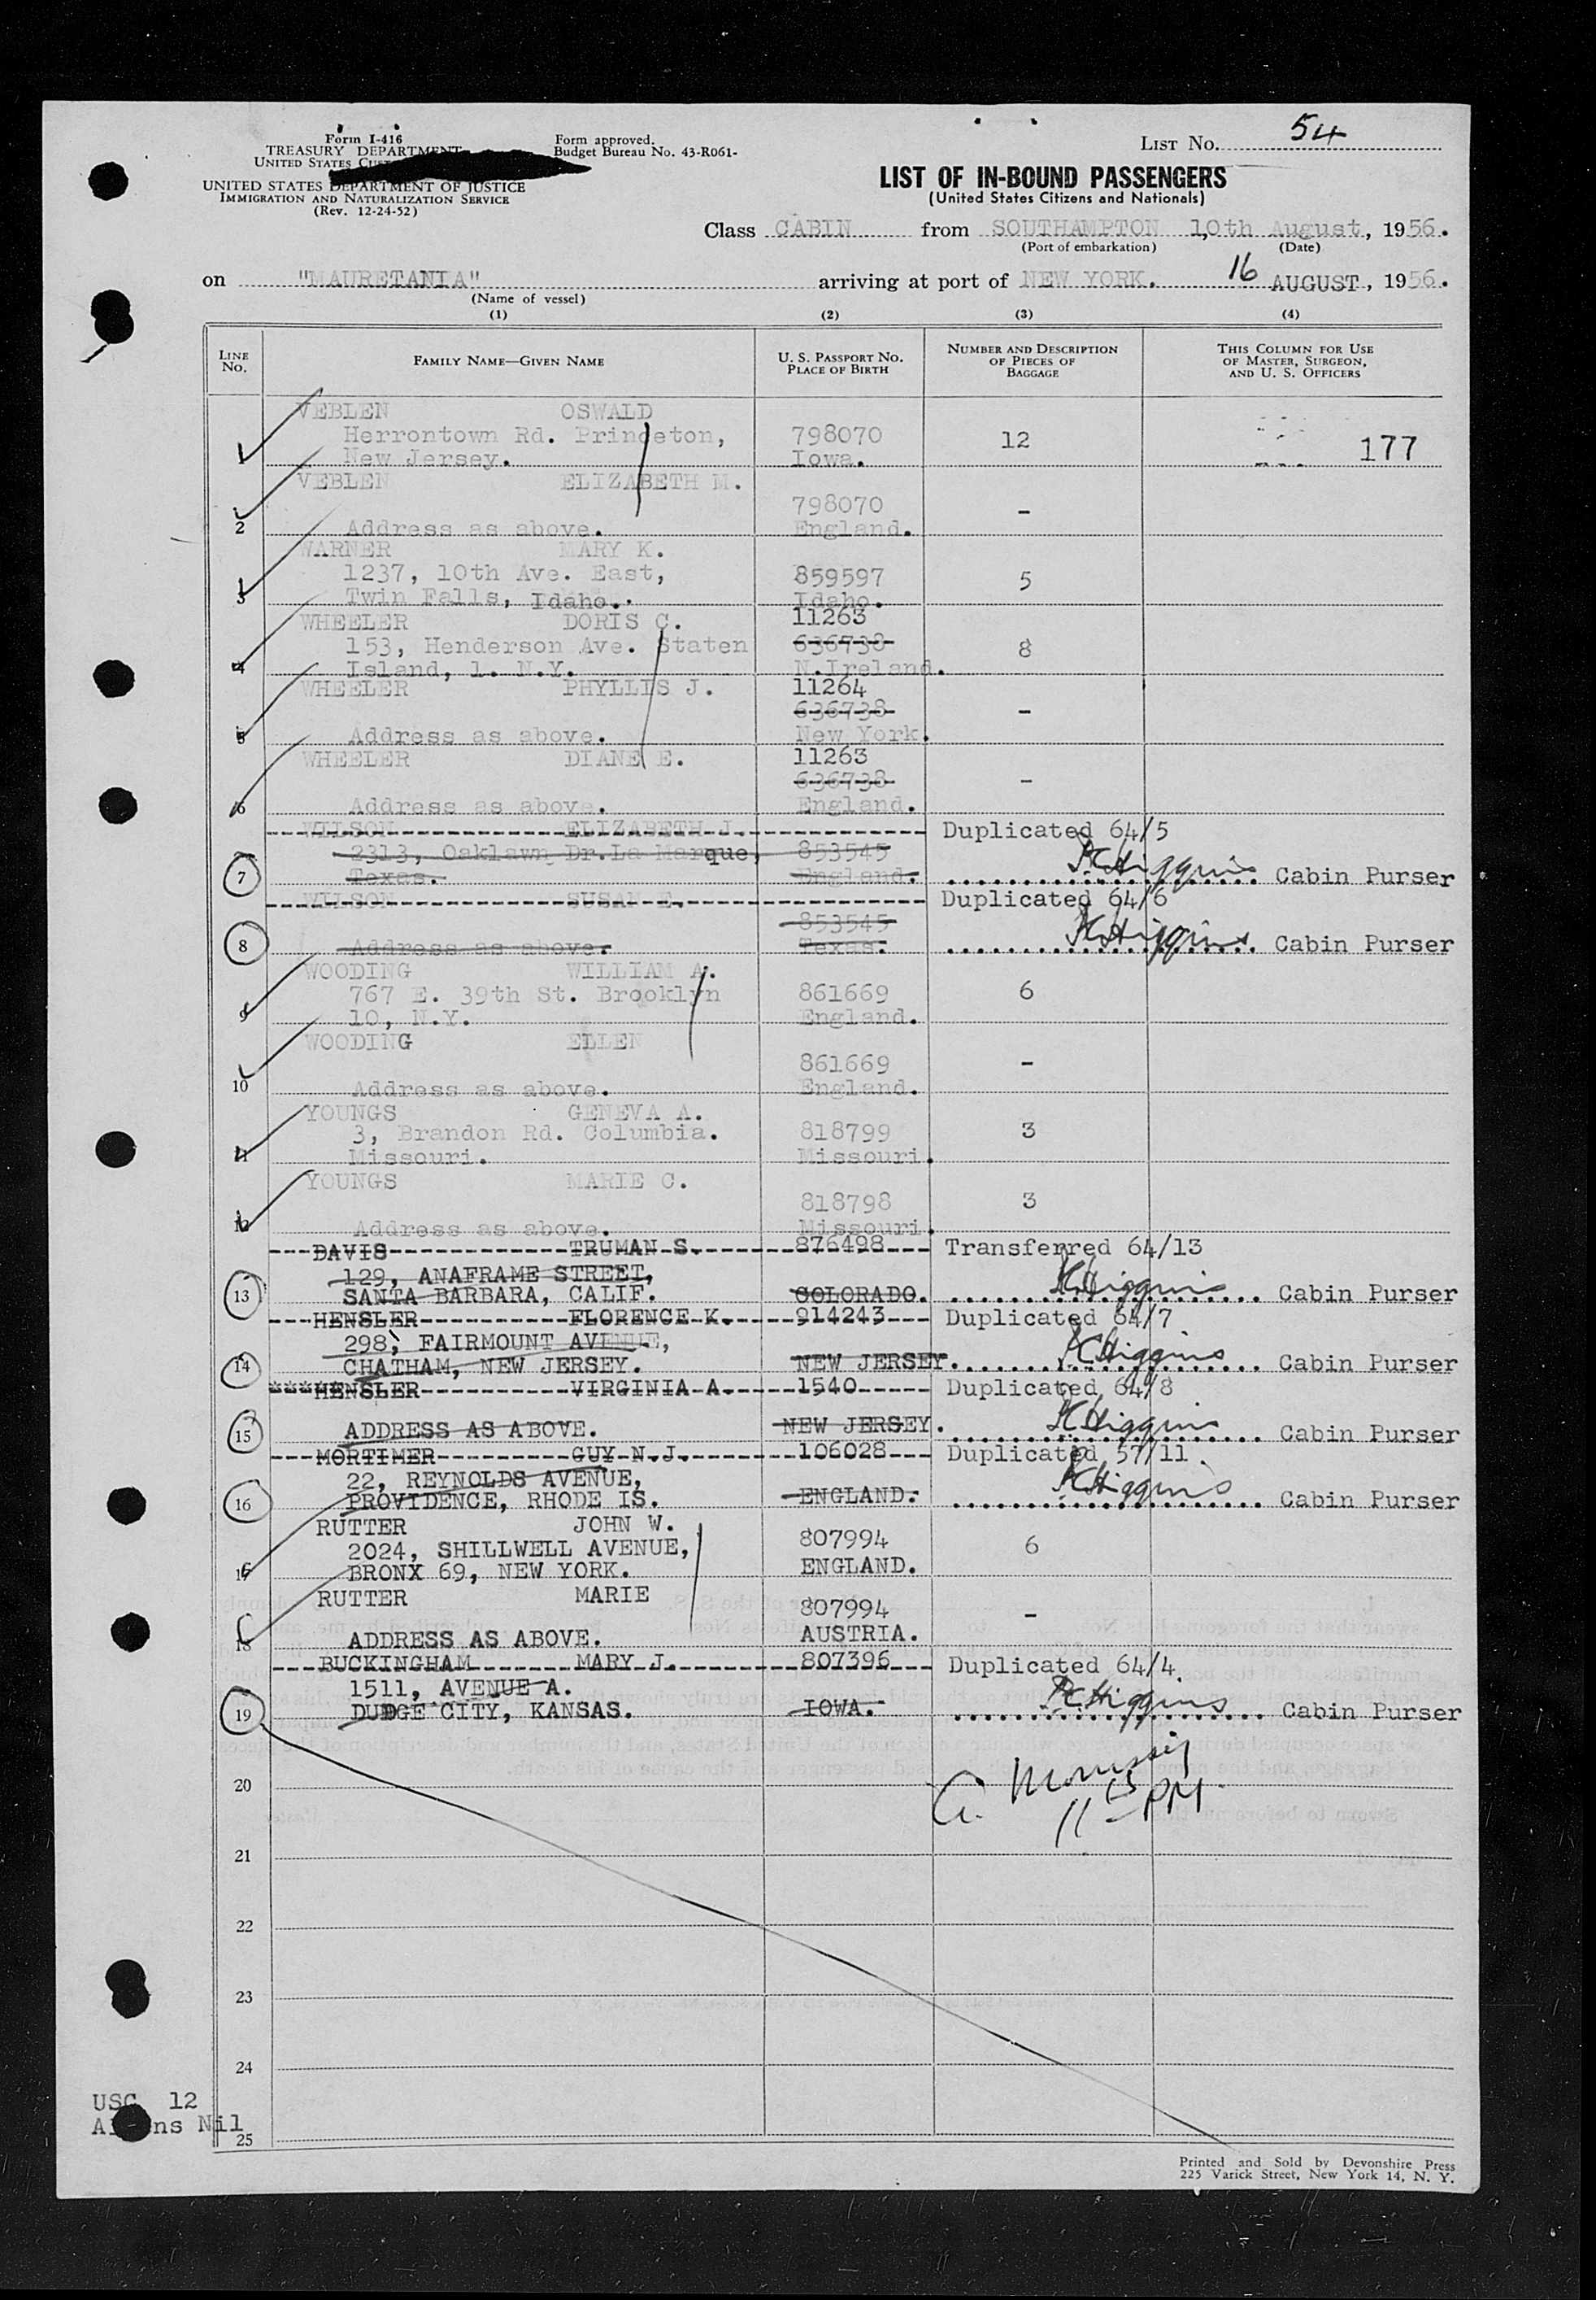 Form I-416
TREASURY DEPARTMENT
UNITED STATES
UNITED STATES DEPARTMENT OF JUSTICE
IMMIGRATION AND NATURALIZATION SERVICE
(Rev. 12-24-52)
Form approved.
Budget Bureau No. 43-R061-
LIST No. 54
LIST OF IN-BOUND PASSENGERS
(United States Citizens and Nationals)
Class CABIN from SOUTHAMPTON 10th August, 1956.
(Port of embarkation) (Date)
on "MAURETANIA" arriving at port of NEW YORK. 16 AUGUST, 1956.
(Name of vessel)
(1) (2) (3) (4)
LINE No. FAMILY NAME—GIVEN NAME U. S. PASSPORT No. PLACE OF BIRTH NUMBER AND DESCRIPTION OF PIECES OF BAGGAGE THIS COLUMN FOR USE OF MASTER, SURGEON, AND U. S. OFFICERS
VEBLEN OSWALD
Herrontown Rd. Princeton, 798070 12 177
1 New Jersey. Iowa.
VEBLEN ELIZABETH M.
798070 -
2 Address as above. England.
WARNER MARY K.
1237, 10th Ave. East, 859597 5
3 Twin Falls, Idaho. Idaho.
WHEELER DORIS C. 11263
153, Henderson Ave. Staten 636738 8
4 Island, 1. N.Y. N.Ireland.
WHEELER PHYLLIS J. 11264
636738 -
5 Address as above. New York.
WHEELER DIANE E. 11263
636738 -
6 Address as above. England.
WILSON ELIZABETH J. Duplicated 64/5
2313, Oaklawn Dr. La Marque, 853545
7 Texas. England. Higgins Cabin Purser
WILSON SUSAN E. Duplicated 64/6
853545
8 Address as above. Texas. Higgins Cabin Purser
WOODING WILLIAM A.
767 E. 39th St. Brooklyn 861669 6
9 10, N.Y. England.
WOODING ELLEN
861669 -
10 Address as above. England.
YOUNGS GENEVA A.
3, Brandon Rd. Columbia. 818799 3
11 Missouri. Missouri.
YOUNGS MARIE C.
818798 3
12 Address as above. Missouri.
---DAVIS TRUMAN S. 876498 Transferred 64/13
129, ANAFRAME STREET,
13 SANTA BARBARA, CALIF. COLORADO. Higgins Cabin Purser
---HENSLER FLORENCE K. 914243 Duplicated 64/7
298, FAIRMOUNT AVENUE,
14 CHATHAM, NEW JERSEY. NEW JERSEY. Higgins Cabin Purser
HENSLER VIRGINIA A. 1540 Duplicated 64/8
15 ADDRESS AS ABOVE. NEW JERSEY. Higgins Cabin Purser
---MORTIMER GUY N.J. 106028 Duplicated 57/11
22, REYNOLDS AVENUE,
16 PROVIDENCE, RHODE IS. ENGLAND. Higgins Cabin Purser
RUTTER JOHN W.
2024, SHILLWELL AVENUE, 807994 6
17 BRONX 69, NEW YORK. ENGLAND.
RUTTER MARIE
807994 -
18 ADDRESS AS ABOVE. AUSTRIA.
---BUCKINGHAM MARY J. 807396 Duplicated 64/4
1511, AVENUE A.
19 DUDGE CITY, KANSAS. IOWA. Higgins Cabin Purser
20
G. Morrissey
11 15 PM
21
22
23
24
USC 12
Aliens Nil
25
Printed and Sold by Devonshire Press
225 Varick Street, New York 14, N. Y.